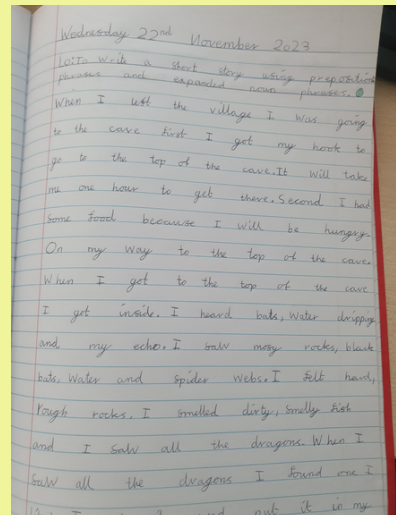 Wednesday 22nd November 2023
LO: To write a short story using preposition
phrases and expanded noun phrases.
When I left the village I was going
to the cave first I got my hook to
go to the top of the cave. It will take
me one hour to get there. Second I had
some food because I will be hungry.
On my way to the top of the cave.
When I got to the top of the cave
I get inside. I heard bats, water dripping
and my echo. I saw mosy rocks, black
bats, water and spider webs. I felt hard,
rough rocks. I smelled dirty, smelly fish
and I saw all the dragons. When I
saw all the dragons I found one I
put it in my